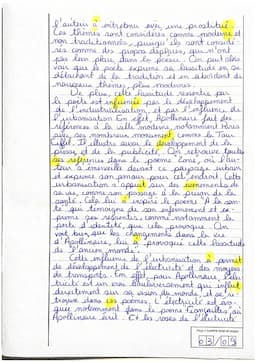 l'auteur a entretenu avec une prostituée.
Ces thèmes sont considérés comme modernes et
non traditionnels, puisqu'ils sont considé-
rés comme des propos déplacés, qui n'ont
pas leur place dans la poésie. On peut alors
voir que le poète exprime sa lassitude en se
détachant de la tradition et en abordant de
nouveaux thèmes plus modernes.
De plus, cette lassitude ressentie par
le poète est influencée par le développement
de l'industrialisation et par l'influence de
l'urbanisation. En effet, Apollinaire fait des
références à la ville moderne notamment
avec ses nombreux monuments comme la Tour
Eiffel. Il illustre aussi le développement de la
presse, et de la publicité. On retrouve toutes
ces références dans le poème Zone, où l'au-
teur s'émerveille devant ce paysage urbain
et exprime son amour pour cet endroit. Cette
urbanisation a aussi sur des événements de
sa vie, comme son passage à la prison de la
santé. Cela lui a inspiré le poème "A la San-
té" qui témoigne de son enfermement et ex-
prime ses ressentis comme notamment la
perte d'identité, que cela provoque. On
voit donc que les changements dans la vie
d'Apollinaire, lui a provoqué cette lassitude
de l'ancien monde.
Cette influence de l'urbanisation a permit
le développement de l'électricité et des moyens
de transports. En effet, pour Apollinaire, l'élec-
tricité est un vrai bouleversement qui influe
directement sur sa vision du monde, et se re-
trouve dans ses poèmes. L'électricité est évo-
quée notamment dans le poème Fiançailles où
Apollinaire écrit : Et les roses de l'électricité
03/03